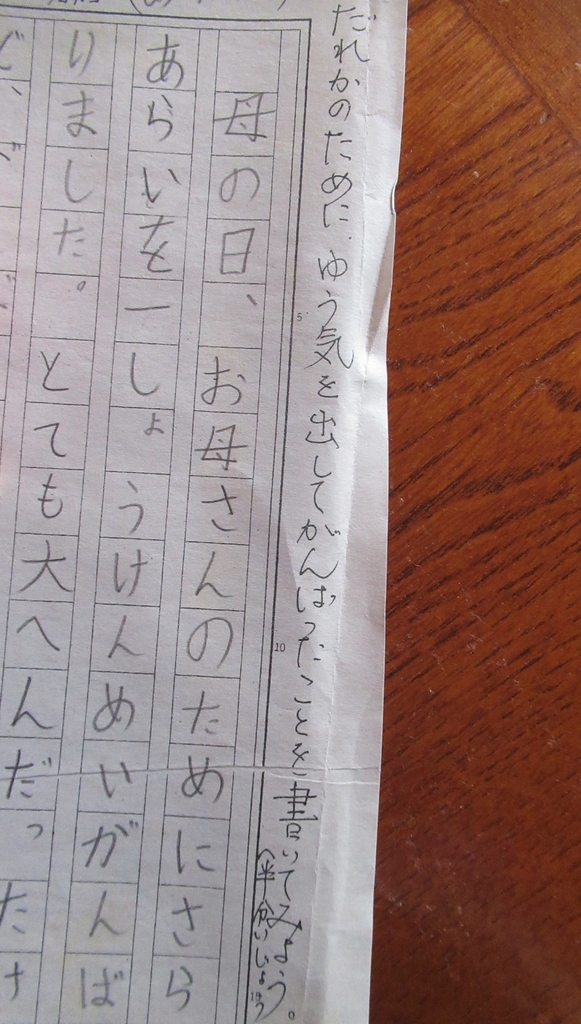 だれかのために、ゆう気を出してがんばったことを書いてみよう。
(半分いじょう)
5
10
15
母の日、お母さんのためにさら
あらいを一しょうけんめいがんば
りました。とても大へんだった